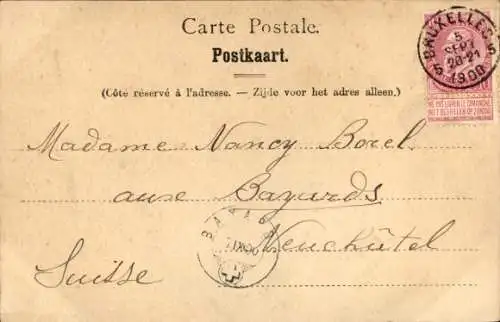 Carte Postale.
Postkaart.
(Côté réservé à l'adresse. — Zijde voor het adres alleen.)
BRUXELLES 5
5
SEPT
20-21
1900
NE PAS LIVRER LE DIMANCHE
NIET BESTELLEN OP ZONDAG
Madame Nancy Borel
aux Bayards
Neuchâtel
Suisse